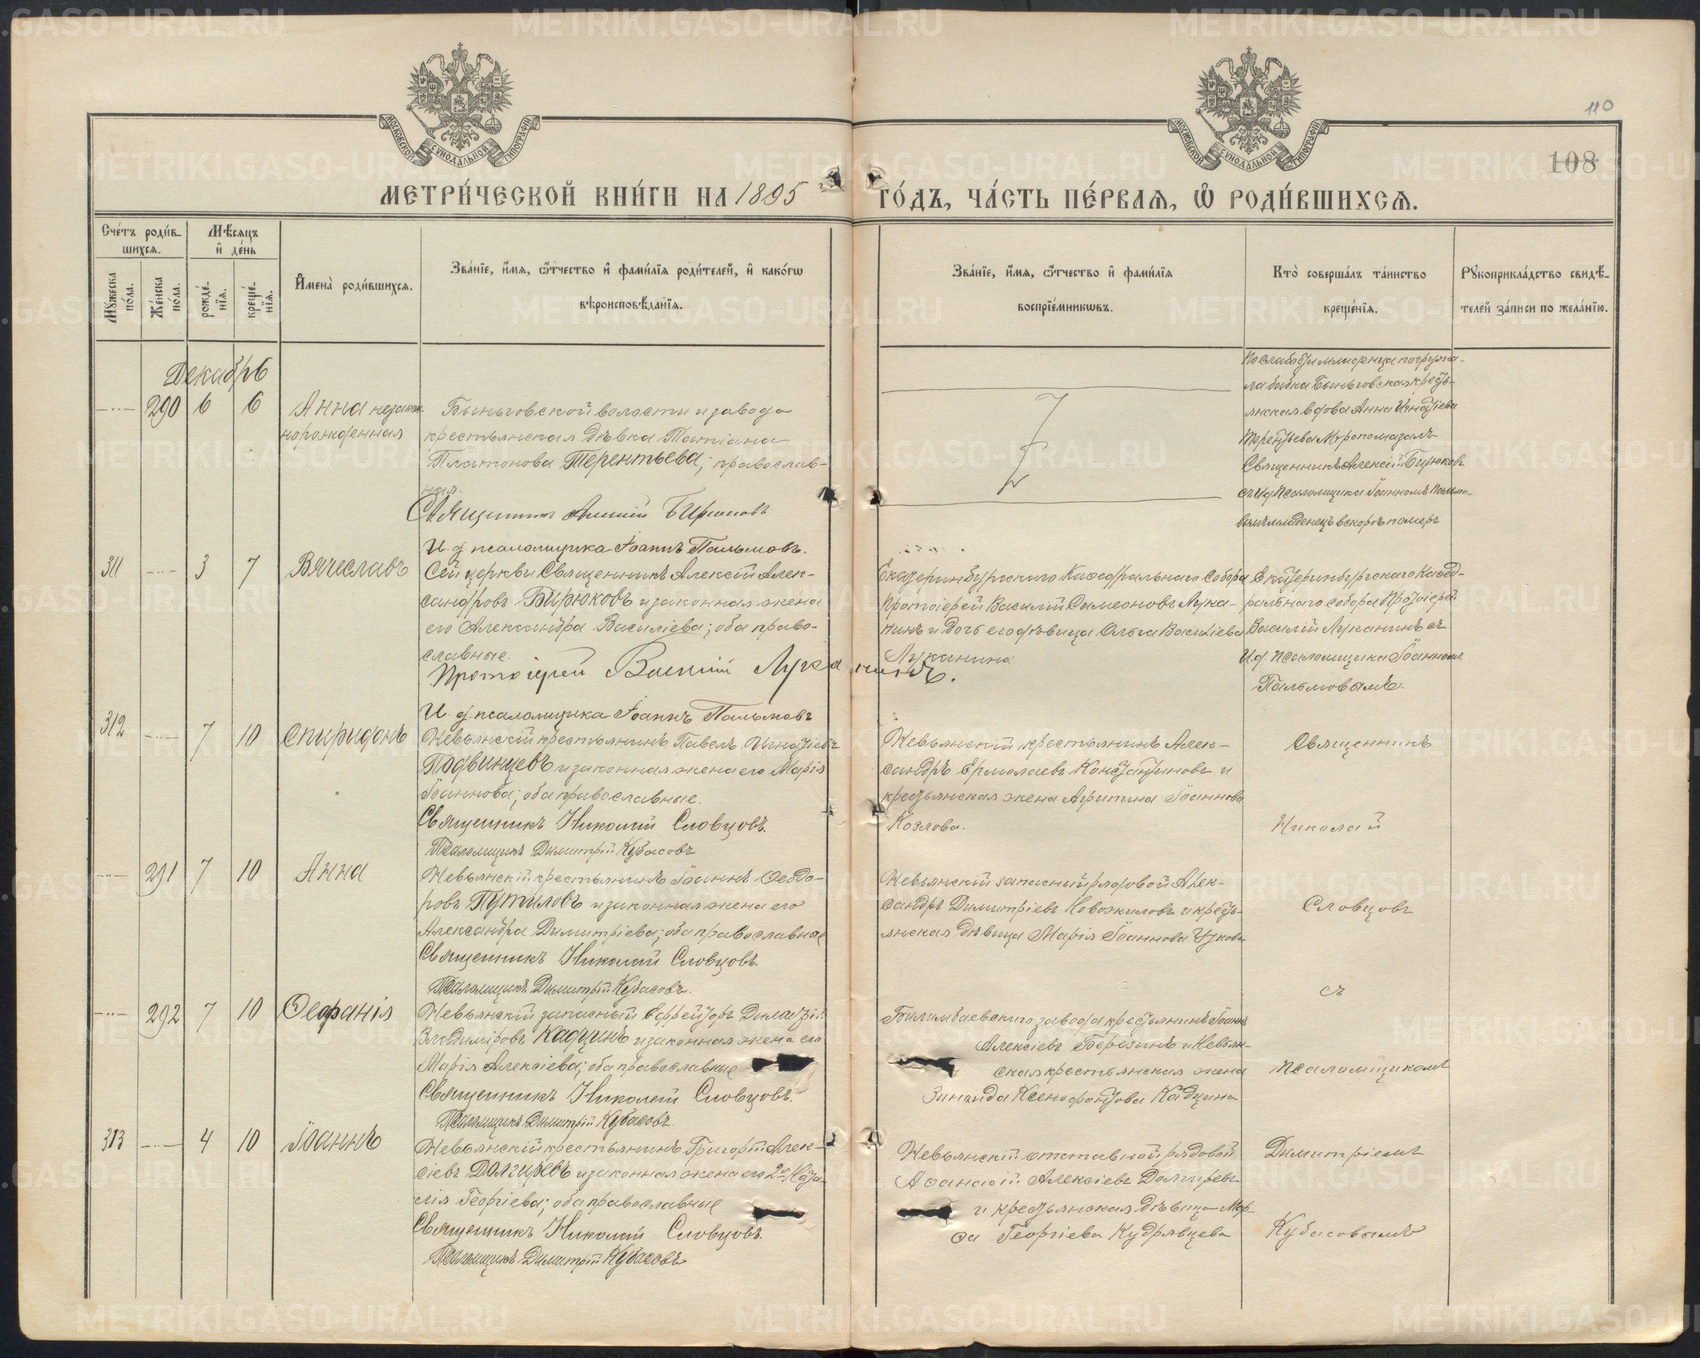 110
108
МЕТРИ́ЧЕСКОЙ КНИ́ГИ НА 1895 ГО́ДЪ, ЧА́СТЬ ПЕ́РВАЯ, Ѽ РОДИ́ВШИХСѦ.
Сче́тъ роди́вшихсѧ.
Мѣ́сяцъ и҆ де́нь
Мꙋ́жеска по́ла.
Же́нска по́ла.
рожде́нїѧ.
креще́нїѧ.
И҆мена̀ роди́вшихсѧ.
Зва́нїе, и҆́мѧ, ѻ҆́тчество и҆ фами́лїѧ роди́телей, и҆ како́гѡ
вѣроисповѣ́данїѧ.
Зва́нїе, и҆́мѧ, ѻ҆́тчество и҆ фами́лїѧ
воспрїе́мникѡвъ.
Кто̀ соверша́лъ та́инство
креще́нїѧ.
Рꙋкоприкла́дство свидѣ́-
телей за́писи по жела́нїю.
Декабрь
290 6 6 Анна незакон
норожденная
Быньговской волости и завода
крестьянская дѣвка Татіана
Платонова Терентьева; православ-
ная.
Священникъ Алексій Бирюковъ
И. д. псаломщика Іоаннъ Пальмовъ.
По слабости младенца погружа-
ла бабка Быньговская кресть-
янская вдова Анна Игнатіева
Терентьева Муропомазалъ
Священникъ Алексій Бирюковъ
съ И.д. Псаломщика Іоанномъ Пальмо-
вымъ младенецъ вскорѣ померъ
311 3 7 Вячеславъ
Сей церкви Священникъ Алексій Алек-
сандровъ Бирюковъ и законная жена
его Александра Василіева; оба право-
славные.
Протоіерей Василій Луканинъ.
И. д. псаломщика Іоаннъ Пальмовъ
Екатеринбургскаго Кафедральнаго Собора
Протоіерей Василій Симеоновъ Лука-
нинъ и дочь его дѣвица Ольга Василіева
Луканина.
Екатеринбургскаго Кафед-
ральнаго собора Протоіерей
Василій Луканинъ съ
И.д. Псаломщика Іоанномъ
Пальмовымъ.
312 7 10 Спиридонъ
Невьянскій крестьянинъ Павелъ Игнатіевъ
Подвинцевъ и законная жена его Марія
Іоаннова; оба православные.
Священникъ Николай Словцовъ.
Псаломщикъ Димитрій Кубасовъ
Невьянскій крестьянинъ Алек-
сандръ Ермолаевъ Константиновъ и
крестьянская жена Агрипина Іоаннова
Козлова.
Священникъ
Николай
291 7 10 Анна
Невьянскій крестьянинъ Іоаннъ Ѳеодо-
ровъ Путиловъ и законная жена его
Александра Димитріева; оба православные
Священникъ Николай Словцовъ.
Псаломщикъ Димитрій Кубасовъ.
Невьянскій запасный рядовой Алек-
сандръ Димитріевъ Новожиловъ и кресть-
янская дѣвица Марія Іоаннова
Словцовъ
съ
292 7 10 Ѳеофанія
Невьянскій запасный Ефрейторъ Димитрій
Владиміровъ Кадцинъ и законная жена его
Марія Алексіева; оба православные
Священникъ Николай Словцовъ.
Псаломщикъ Димитрій Кубасовъ.
Билимбаевскаго завода крестьянинъ Іоаннъ
Алексіевъ Березинъ и Невьян-
ская крестьянская жена
Зинаида Ксенофонтова Кадцина
Псаломщикомъ
313 4 10 Іоаннъ
Невьянскій крестьянинъ Григорій Алек-
сіевъ Долгиревъ и законная жена его
Георгіева; оба православные
Священникъ Николай Словцовъ.
Псаломщикъ Димитрій Кубасовъ
Невьянскій отставной рядовой
Аѳанасій Алексіевъ Долгиревъ
и крестьянская дѣвица
Георгіева Кудрявцева
Димитріемъ
Кубасовымъ
METRIKI.GASO-URAL.RU